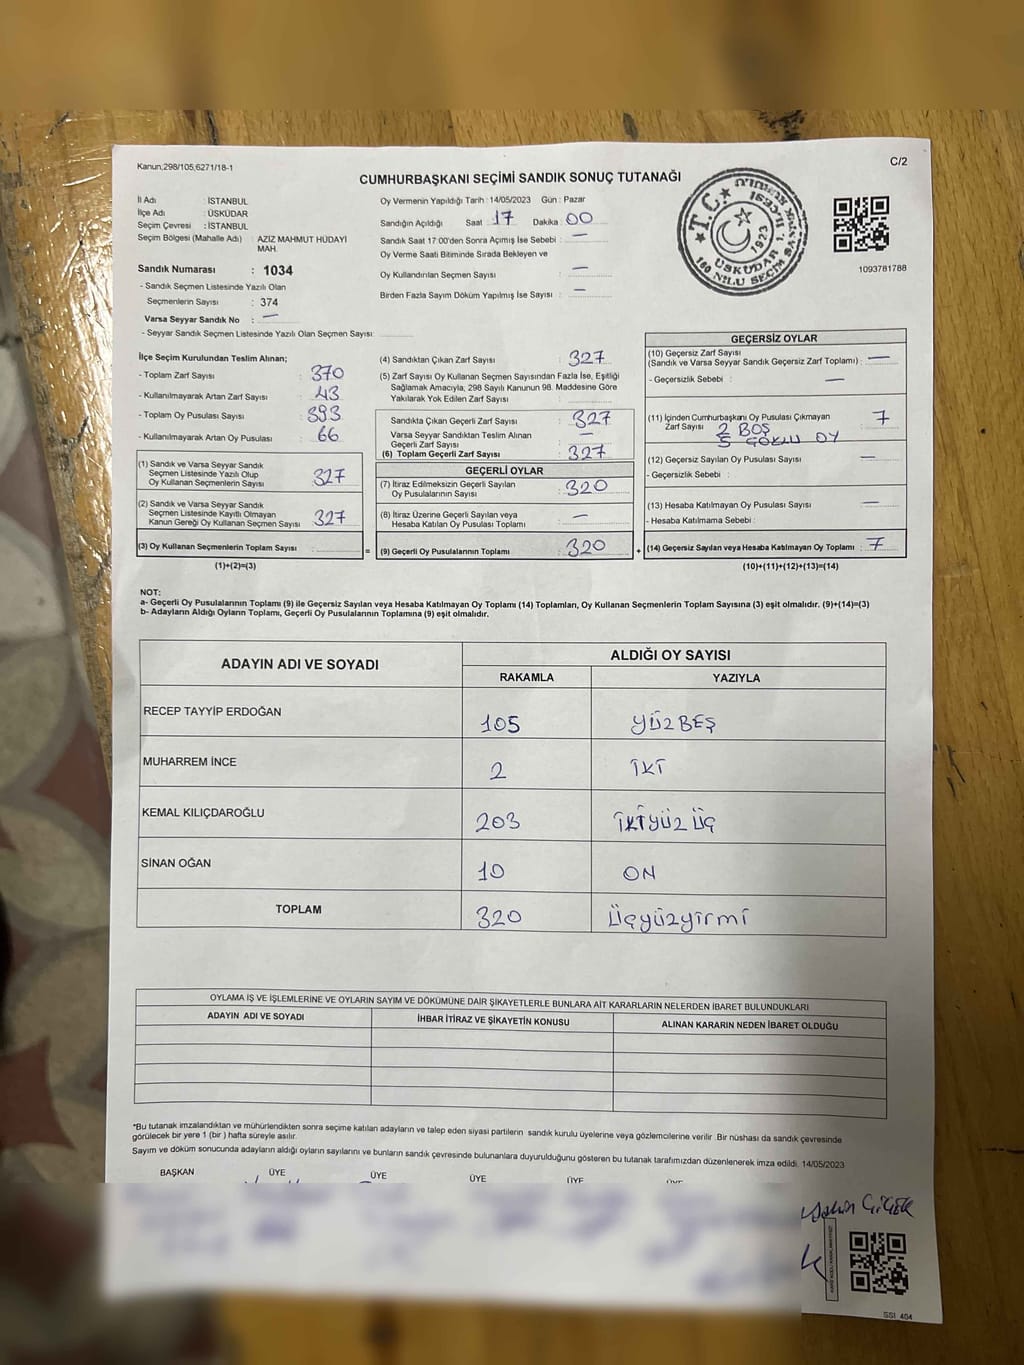 Kanun,298/105,6271/18-1
C/2
CUMHURBAŞKANI SEÇİMİ SANDIK SONUÇ TUTANAĞI
İl Adı : İSTANBUL
İlçe Adı : ÜSKÜDAR
Seçim Çevresi : İSTANBUL
Seçim Bölgesi (Mahalle Adı) : AZİZ MAHMUT HÜDAYİ
MAH.
Sandık Numarası : 1034
- Sandık Seçmen Listesinde Yazılı Olan
Seçmenlerin Sayısı : 374
Varsa Seyyar Sandık No : —
- Seyyar Sandık Seçmen Listesinde Yazılı Olan Seçmen Sayısı:
Oy Vermenin Yapıldığı Tarih : 14/05/2023 Gün : Pazar
Sandığın Açıldığı Saat 17 Dakika 00
Sandık Saat 17:00'den Sonra Açımış İse Sebebi : —
Oy Verme Saati Bitiminde Sırada Bekleyen ve
Oy Kullandırılan Seçmen Sayısı —
Birden Fazla Sayım Döküm Yapılmış İse Sayısı : —
T.C.
1923
ÜSKÜDAR 1.
1093781788
İlçe Seçim Kurulundan Teslim Alınan;
- Toplam Zarf Sayısı : 370
- Kullanılmayarak Artan Zarf Sayısı : 43
- Toplam Oy Pusulası Sayısı : 393
- Kullanılmayarak Artan Oy Pusulası : 66
(1) Sandık ve Varsa Seyyar Sandık
Seçmen Listesinde Yazılı Olup
Oy Kullanan Seçmenlerin Sayısı : 327
(2) Sandık ve Varsa Seyyar Sandık
Seçmen Listesinde Kayıtlı Olmayan
Kanun Gereği Oy Kullanan Seçmen Sayısı : 327
(3) Oy Kullanan Seçmenlerin Toplam Sayısı :
(1)+(2)=(3)
(4) Sandıktan Çıkan Zarf Sayısı : 327
(5) Zarf Sayısı Oy Kullanan Seçmen Sayısından Fazla İse, Eşitliği
Sağlamak Amacıyla, 298 Sayılı Kanunun 98. Maddesine Göre
Yakılarak Yok Edilen Zarf Sayısı :
Sandıkta Çıkan Geçerli Zarf Sayısı : 327
Varsa Seyyar Sandıktan Teslim Alınan
Geçerli Zarf Sayısı : —
(6) Toplam Geçerli Zarf Sayısı : 327
GEÇERLİ OYLAR
(7) İtiraz Edilmeksizin Geçerli Sayılan
Oy Pusulalarının Sayısı : 320
(8) İtiraz Üzerine Geçerli Sayılan veya
Hesaba Katılan Oy Pusulası Toplamı : —
= (9) Geçerli Oy Pusulalarının Toplamı : 320 +
GEÇERSİZ OYLAR
(10) Geçersiz Zarf Sayısı
(Sandık ve Varsa Seyyar Sandık Geçersiz Zarf Toplamı) : —
- Geçersizlik Sebebi : —
(11) İçinden Cumhurbaşkanı Oy Pusulası Çıkmayan
Zarf Sayısı : 7
2 BOŞ
5 ÇOKLU OY
(12) Geçersiz Sayılan Oy Pusulası Sayısı : —
- Geçersizlik Sebebi :
(13) Hesaba Katılmayan Oy Pusulası Sayısı : —
- Hesaba Katılmama Sebebi :
(14) Geçersiz Sayılan veya Hesaba Katılmayan Oy Toplamı : 7
(10)+(11)+(12)+(13)=(14)
NOT:
a- Geçerli Oy Pusulalarının Toplamı (9) ile Geçersiz Sayılan veya Hesaba Katılmayan Oy Toplamı (14) Toplamları, Oy Kullanan Seçmenlerin Toplam Sayısına (3) eşit olmalıdır. (9)+(14)=(3)
b- Adayların Aldığı Oyların Toplamı, Geçerli Oy Pusulalarının Toplamına (9) eşit olmalıdır.
ADAYIN ADI VE SOYADI ALDIĞI OY SAYISI
RAKAMLA YAZIYLA
RECEP TAYYİP ERDOĞAN 105 YÜZBEŞ
MUHARREM İNCE 2 İKİ
KEMAL KILIÇDAROĞLU 203 İKİYÜZ ÜÇ
SİNAN OĞAN 10 ON
TOPLAM 320 ÜÇYÜZYİRMİ
OYLAMA İŞ VE İŞLEMLERİNE VE OYLARIN SAYIM VE DÖKÜMÜNE DAİR ŞİKAYETLERLE BUNLARA AİT KARARLARIN NELERDEN İBARET BULUNDUKLARI
ADAYIN ADI VE SOYADI İHBAR İTİRAZ VE ŞİKAYETİN KONUSU ALINAN KARARIN NEDEN İBARET OLDUĞU
*Bu tutanak imzalandıktan ve mühürlendikten sonra seçime katılan adayların ve talep eden siyasi partilerin sandık kurulu üyelerine veya gözlemcilerine verilir. Bir nüshası da sandık çevresinde
görülecek bir yere 1 (bir ) hafta süreyle asılır.
Sayım ve döküm sonucunda adayların aldığı oyların sayılarını ve bunların sandık çevresinde bulunanlara duyurulduğunu gösteren bu tutanak tarafımızdan düzenlenerek imza edildi. 14/05/2023
BAŞKAN ÜYE ÜYE ÜYE ÜYE ÜYE
SSI 404